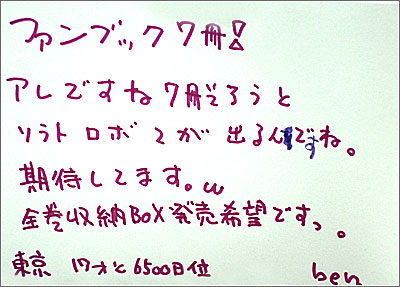 ファンブック7冊!
アレですね7冊そろうと
ソラトロボ2が出るんですね。
期待してます。ω
全巻収納BOX発売希望ですっ。
東京 17才と6500日位 ben